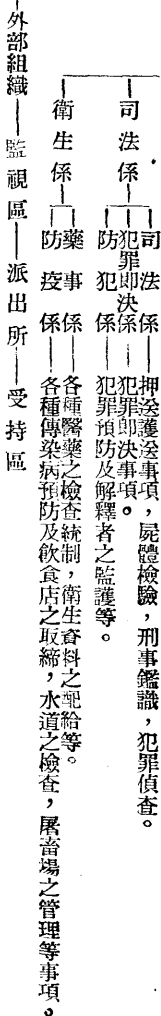 司法係
司法係——押送護送事項，屍體檢驗，刑事鑑識，犯罪偵查。
犯罪即決係——犯罪即決事項。
防犯係——犯罪預防及解釋者之監護等。
衛生係
藥事係——各種醫藥之檢查統制，衛生資料之配給等。
防疫係——各種傳染病預防及飲食店之取締，水道之檢查，屠畜場之管理等事項。
外部組織——監視區——派出所——受持區